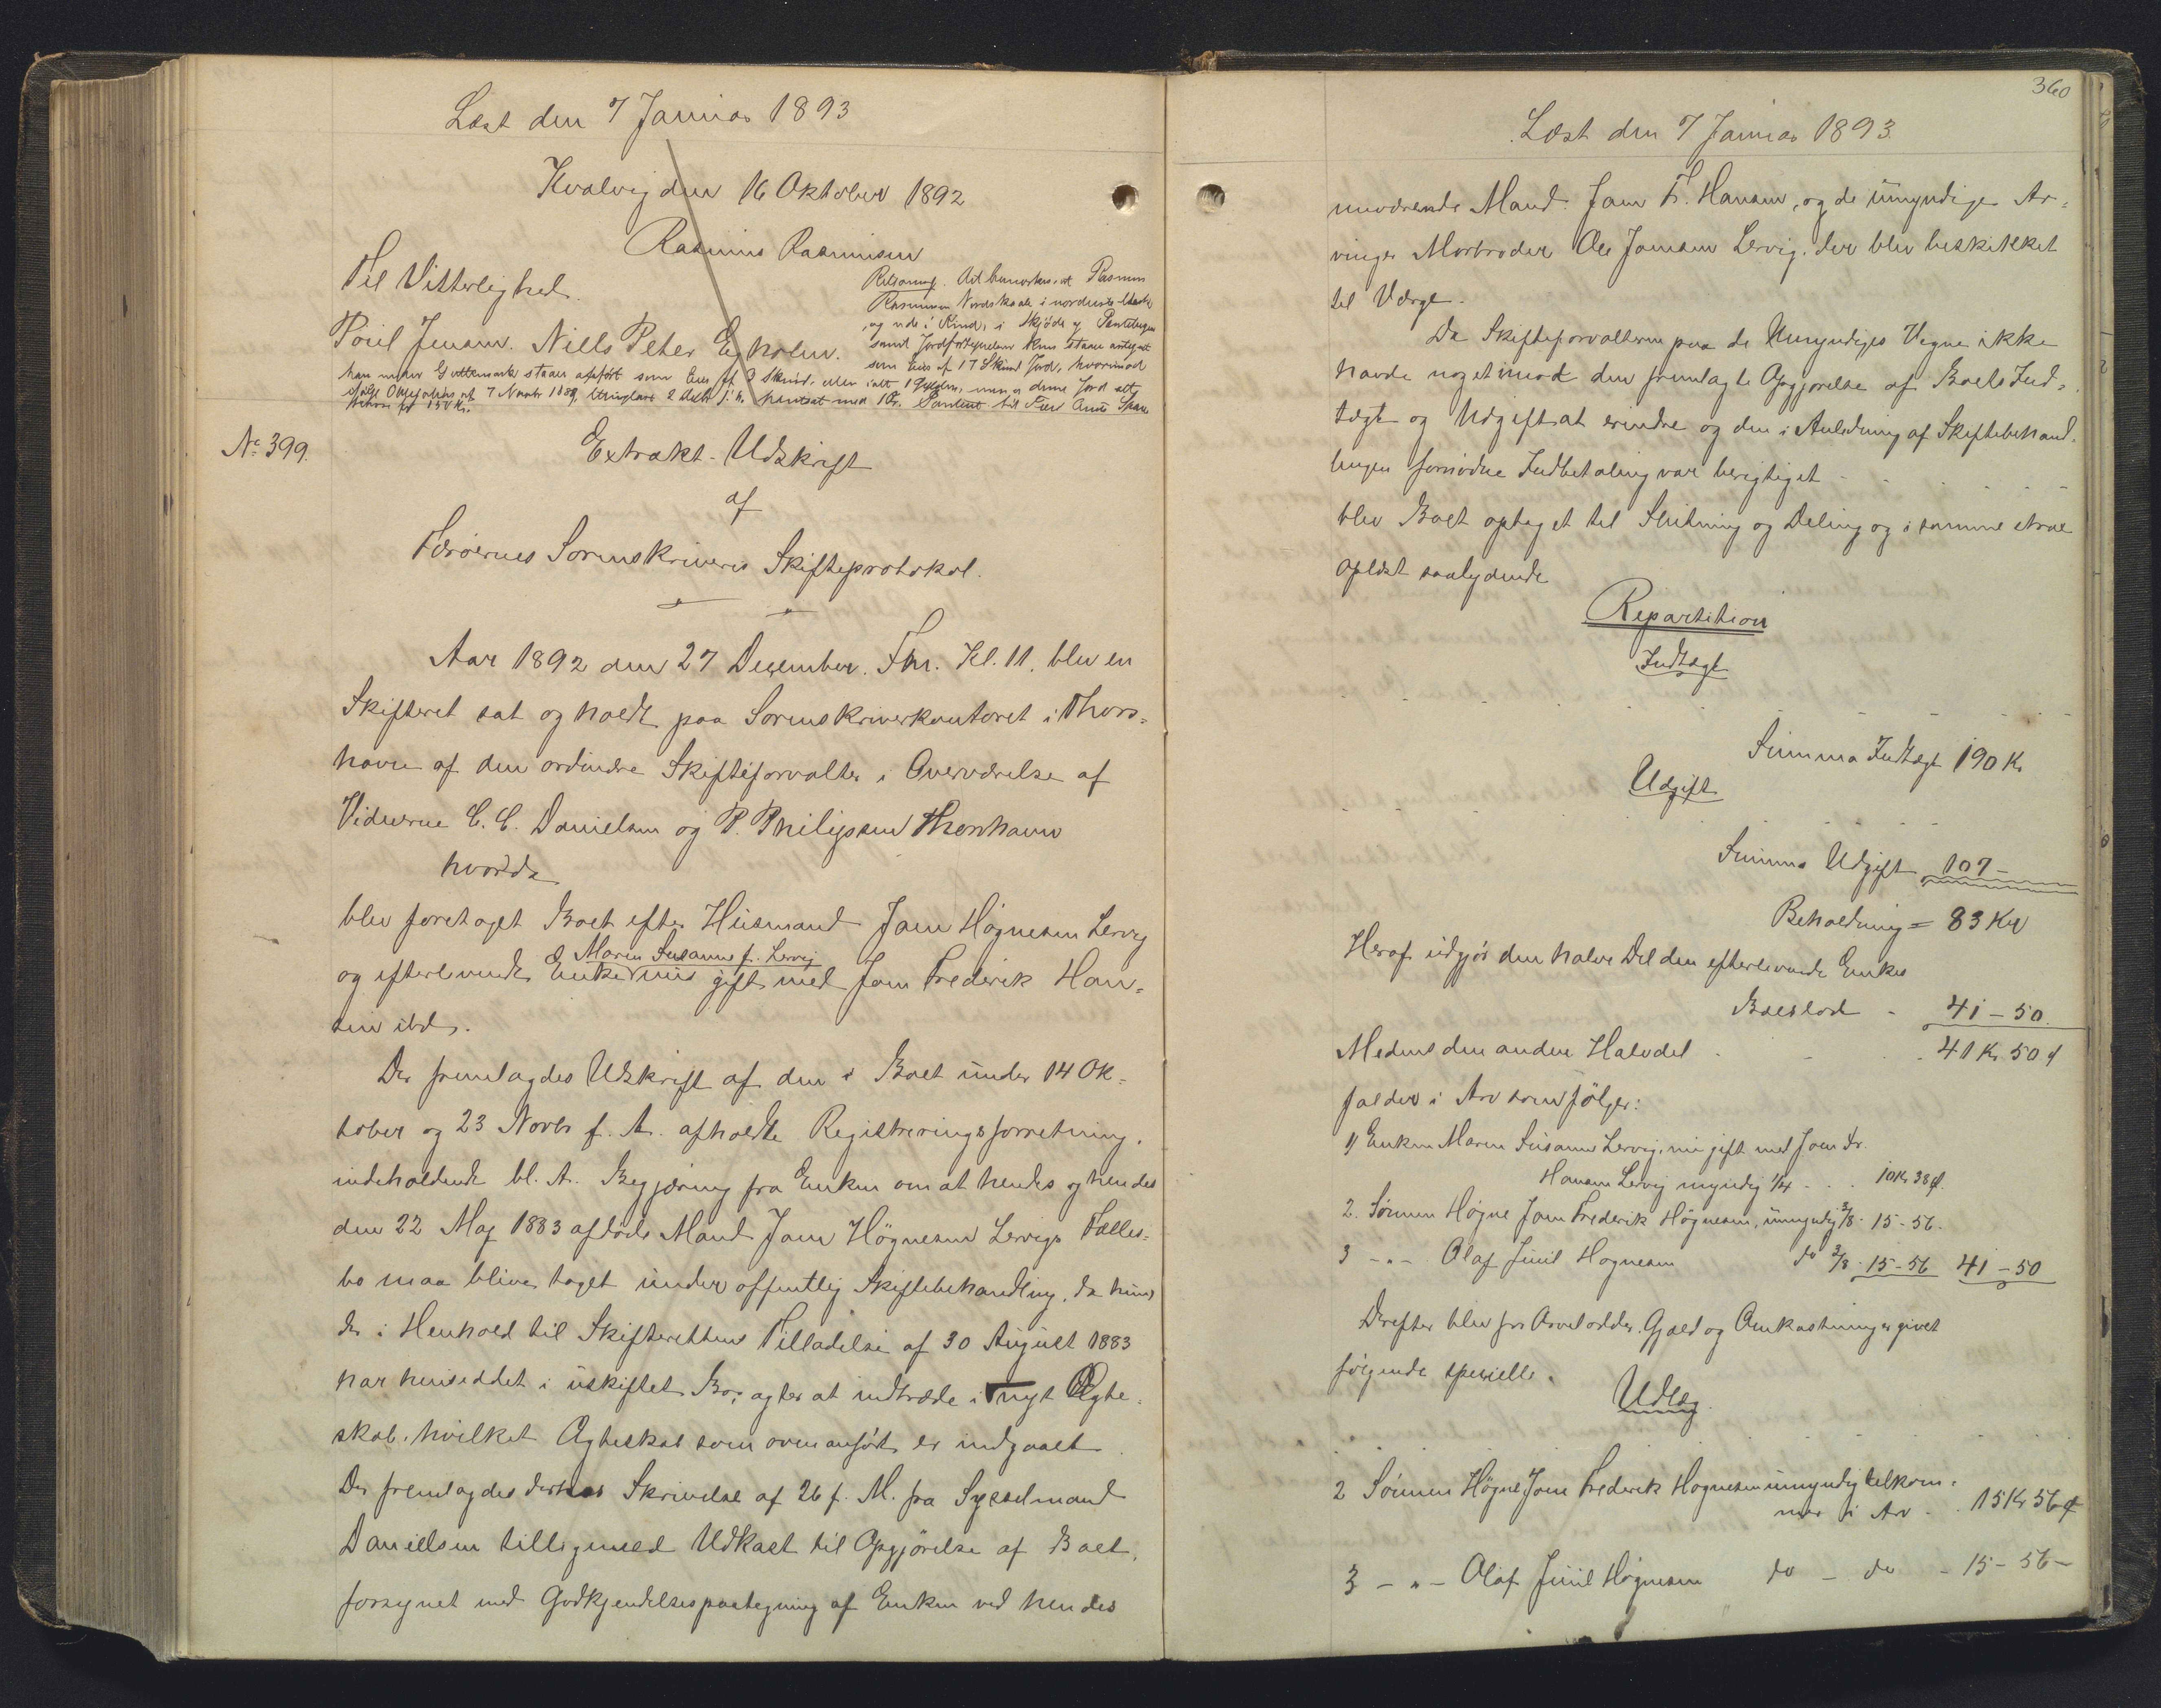 Læst den 7 Januar 1893
Kvalvig den 16 Oktober 1892
Rasmus Rasmusen
Til Vitterlighed.
Poul Jensen. Niels Peter Egholm.
Retsanmg. Det bemærkes, at Rasmus
Rasmusen Nordskaale i nordenste
og nde i Kind, i Skjöde og Pantebogen
samt Jordfortegnelsen kun staar antegnet
som Eier af 17 Skind Jord, hvorimod
han under Gottemark staar opført som Eier af 3 Skind, eller ialt 1 Gylden, men er denne Jord ett
ifølge Obligation af 7 Novbr 1889, 2 Febr. f. A. pantsat med 1 Pr. Panteret til
for 150 Kr.
No 399.
Extrakt-Udskrift
af
Færöernes Sorenskriveris Skifteprotokol.
Aar 1892 den 27 December. Fm. Kl. 11. blev en
Skifteret sat og holdt paa Sorenskriverkontoret i Thors-
havn af den ordinære Skifteforvalter i Overværelse af
Vidnerne C. C. Danielsen og P. Philipsen Thorshavn
hvorda
blev foretaget Boet efter Husmand Joen Högnesen Lervig
og efterlevende Enke Maren Susanne f. Lervig nu gift med Joen Frederik Han-
sen ibd.
Der fremlagdes Udskrift af den i Boet under 14 Ok-
tober og 23 Novbr f. A. afholdte Registreringsforretning.
indeholdende bl. A. Begjæring fra Enken om at hendes og hendes
den 22 Maj 1883 afdöde Mand Joen Högnesen Lervigs Fælles-
bo maa blive taget under offentlig Skiftebehandling, da hun,
der i Henhold til Skifterettens Tilladelse af 30 August 1883
har hensiddet i uskiftet Bo, agter at indtræde i nyt Ægte-
skab, hvilket Ægteskab som ovenanført er indgaaet.
Der fremlagdes derhos Skrivelse af 26 f. M. fra Sysselmand
Danielsen tilligemed Udkast til Opgjörelse af Boet,
forsynet med Godkjendelsespaategning af Enken ved hendes
360
Læst den 7 Januar 1893.
nuværende Mand Joen Fr. Hansen, og de umyndige Ar-
vinger Morbroder Ole Joensen Lervig, der blev beskikket
til Værge.
Da Skifteforvalteren paa de Umyndiges Vegne ikke
havde noget imod den fremlagte Opgjörelse af Boets Ind-
tægt og Udgift at erindre og den i Anledning af Skiftebehand-
lingen fornödne Indbetaling var berigtiget
blev Boet optaget til Slutning og Deling og i samme
oplæst saalydende
Repartition
Indtægt
Summa Indtægt 190 Kr
Udgift
Summa Udgift 107 -
Beholdning = 83 Kr
Heraf udgjör den halve Del den efterlevende Enkes
Boeslod - 41 - 50.
Medens den anden Halvdel - 41 Kr. 50 ø
falder i Arv som fölger:
1) Enken Maren Susanne Lervig, nu gift med Joen Fr.
Hansen Lervig myndig 1/4 . . . 10 Kr 38 ø.
2. Sönnen Högne Joen Frederik Högnesen, umyndig 3/8 . 15 - 56.
3 - " - Olaf Juul Hognesen do 3/8 . 15 - 56 41 - 50
Derefter blev for Arvelodder, Gjæld og Omkostninger givet
fölgende specielle.
Udlæg.
2 Sönnen Högne Joen Frederik Hognesen umyndig tilkom-
mer i Arv . . 15 Kr 56 ø
3 - " - Olaf Juul Högnesen do - do - 15 - 56 -